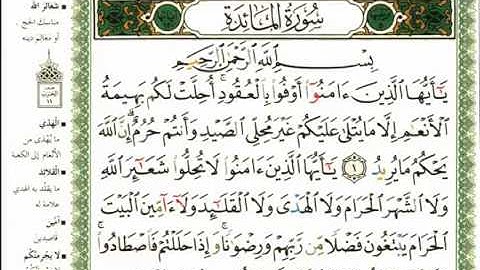 سُورَةُ المَائِدَةِ
بِسْمِ اللَّهِ الرَّحْمَٰنِ الرَّحِيمِ
يَٰٓأَيُّهَا ٱلَّذِينَ ءَامَنُوٓا۟ أَوْفُوا۟ بِٱلْعُقُودِ ۚ أُحِلَّتْ لَكُم بَهِيمَةُ
ٱلْأَنْعَٰمِ إِلَّا مَا يُتْلَىٰ عَلَيْكُمْ غَيْرَ مُحِلِّى ٱلصَّيْدِ وَأَنتُمْ حُرُمٌ ۗ إِنَّ ٱللَّهَ
يَحْكُمُ مَا يُرِيدُ ١ يَٰٓأَيُّهَا ٱلَّذِينَ ءَامَنُوا۟ لَا تُحِلُّوا۟ شَعَٰٓئِرَ ٱللَّهِ
وَلَا ٱلشَّهْرَ ٱلْحَرَامَ وَلَا ٱلْهَدْىَ وَلَا ٱلْقَلَٰٓئِدَ وَلَآ ءَآمِّينَ ٱلْبَيْتَ
ٱلْحَرَامَ يَبْتَغُونَ فَضْلًا مِّن رَّبِّهِمْ وَرِضْوَٰنًا ۚ وَإِذَا حَلَلْتُمْ فَٱصْطَادُوا۟ ۚ
شعائر الله
مناسك الحج
أو معالم دينه
الهَدْي
ما يُهْدى من
الأنعام إلى الكعبة
القَلائد
ما يقلّد به الهدي
علامة له
آمّين
قاصدين
لا يجرمنّكم